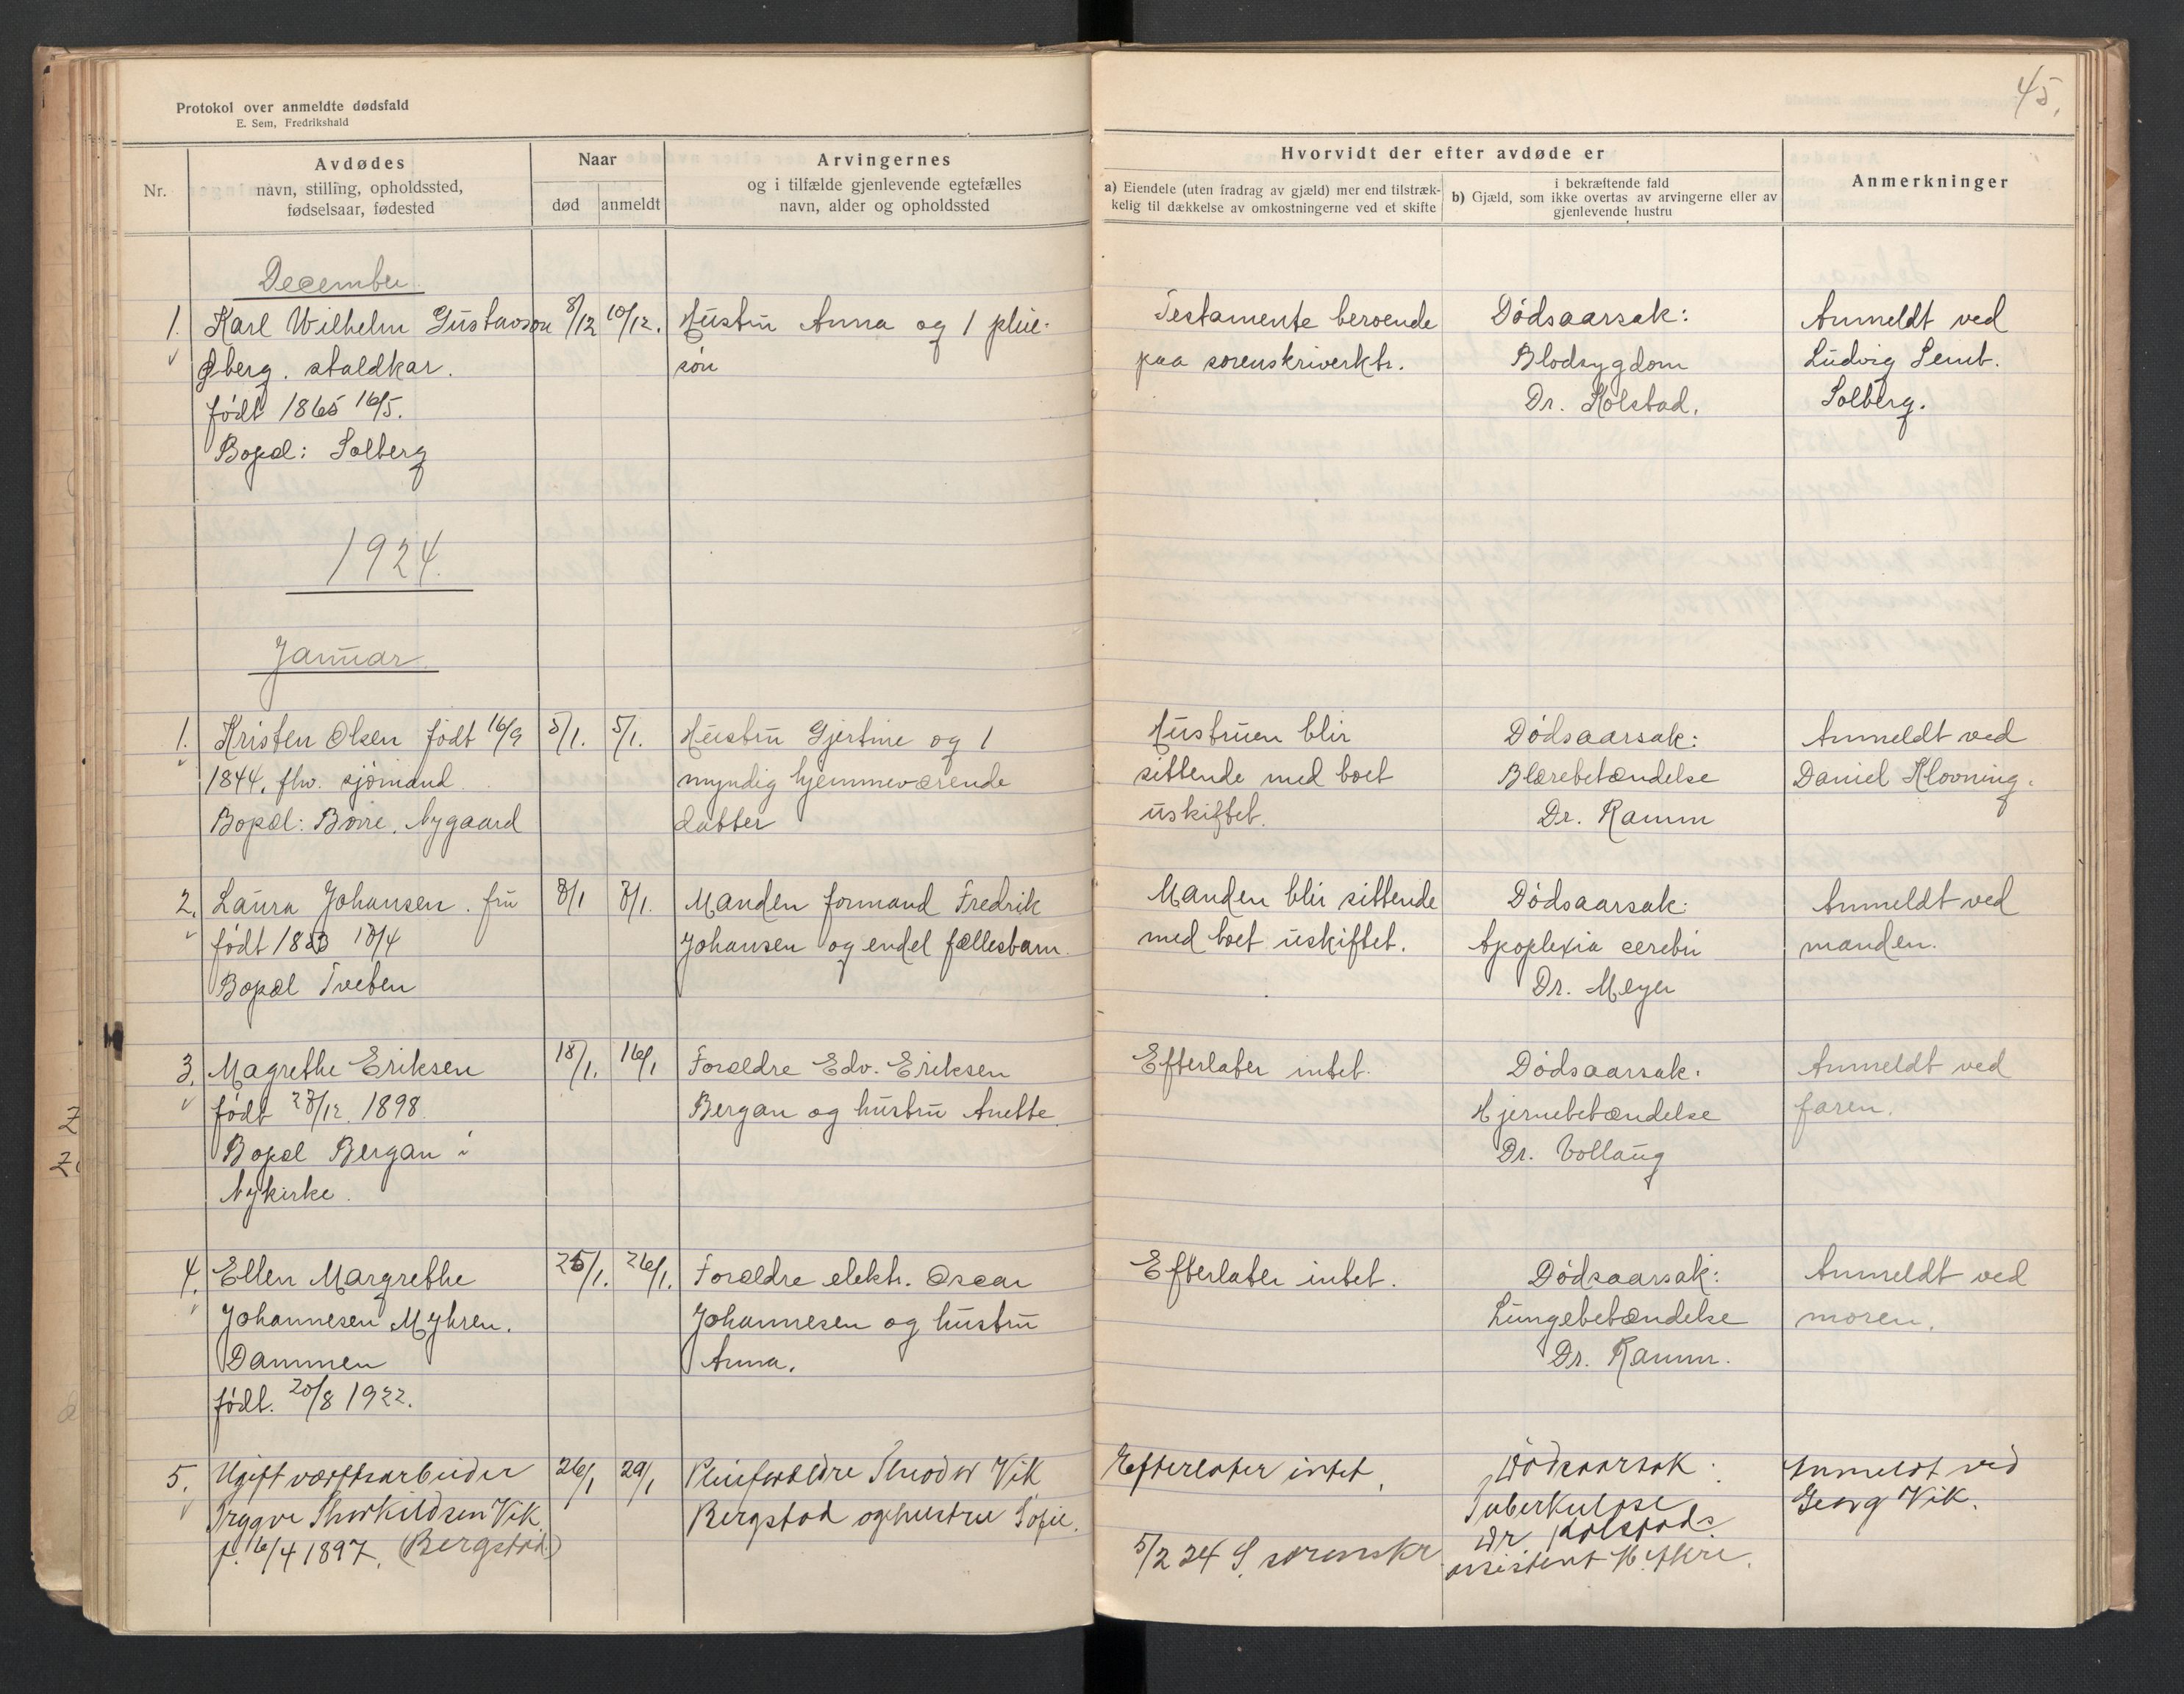 45.
Protokol over anmeldte dødsfald
E. Sem, Fredrikshald
Nr.
Avdødes
navn, stilling, opholdssted,
fødselsaar, fødested
Naar
død
anmeldt
Arvingernes
og i tilfælde gjenlevende egtefælles
navn, alder og opholdssted
Hvorvidt der efter avdøde er
a) Eiendele (uten fradrag av gjæld) mer end tilstræk-
kelig til dækkelse av omkostningerne ved et skifte
i bekræftende fald
b) Gjæld, som ikke overtas av arvingerne eller av
gjenlevende hustru
Anmerkninger
December
1. Karl Wilhelm Gustavson
Øberg. staldkar.
født 1865 16/5.
Bopæl: Solberg
8/12
10/12.
Hustru Anna og 1 pleie-
søn
Testamente beroende
paa sorenskriverktr.
Dødsaarsak:
Blodsygdom
Dr. Kolstad.
Anmeldt ved
Ludvig Semb.
Solberg.
1924.
Januar
1. Kristen Olsen født 16/9
1844. fhv. sjømand
Bopæl: Borre. Nygaard
5/1.
5/1.
Hustru Gjertine og 1
myndig hjemmeværende
datter
Hustruen blir
sittende med boet
uskiftet.
Dødsaarsak:
Blærebetændelse
Dr. Ramm
Anmeldt ved
Daniel Klovning.
2. Laura Johansen. fru
født 1883 18/4
Bopæl Tveten
8/1
8/1.
Manden formand Fredrik
Johansen og endel fællesbarn.
Manden blir sittende
med boet uskiftet.
Dødsaarsak:
Apoplexia cerebri
Dr. Meyer
Anmeldt ved
manden.
3. Magrethe Eriksen
født 28/12. 1898.
Bopæl Bergan i
Nykirke.
15/1.
16/1
Forældre Edv. Eriksen
Bergan og hustru Anette.
Efterlater intet.
Dødsaarsak.
Hjernebetændelse
Dr. Vollaug
Anmeldt ved
faren.
4. Ellen Margrethe
Johannesen Myhren.
Dammen
født. 20/8 1922.
25/1.
26/1.
Forældre elektr. Oscar
Johannesen og hustru
Anna.
Efterlater intet.
Dødsaarsak:
Lungebetændelse
Dr. Ramm.
Anmeldt ved
moren.
5. Ugift værftsarbeider
Trygve Thorkildsen Vik
f. 16/4 1897. (Bergstod)
26/1
29/1
Pleieforældre Theodor Vik
Bergstod og hustru Sofie.
Efterlater intet.
5/2 24 S. sorenskr.
Dødsaarsak:
Tuberkulose
Dr Kolstads
assistent
Anmeldt ved
Georg Vik.